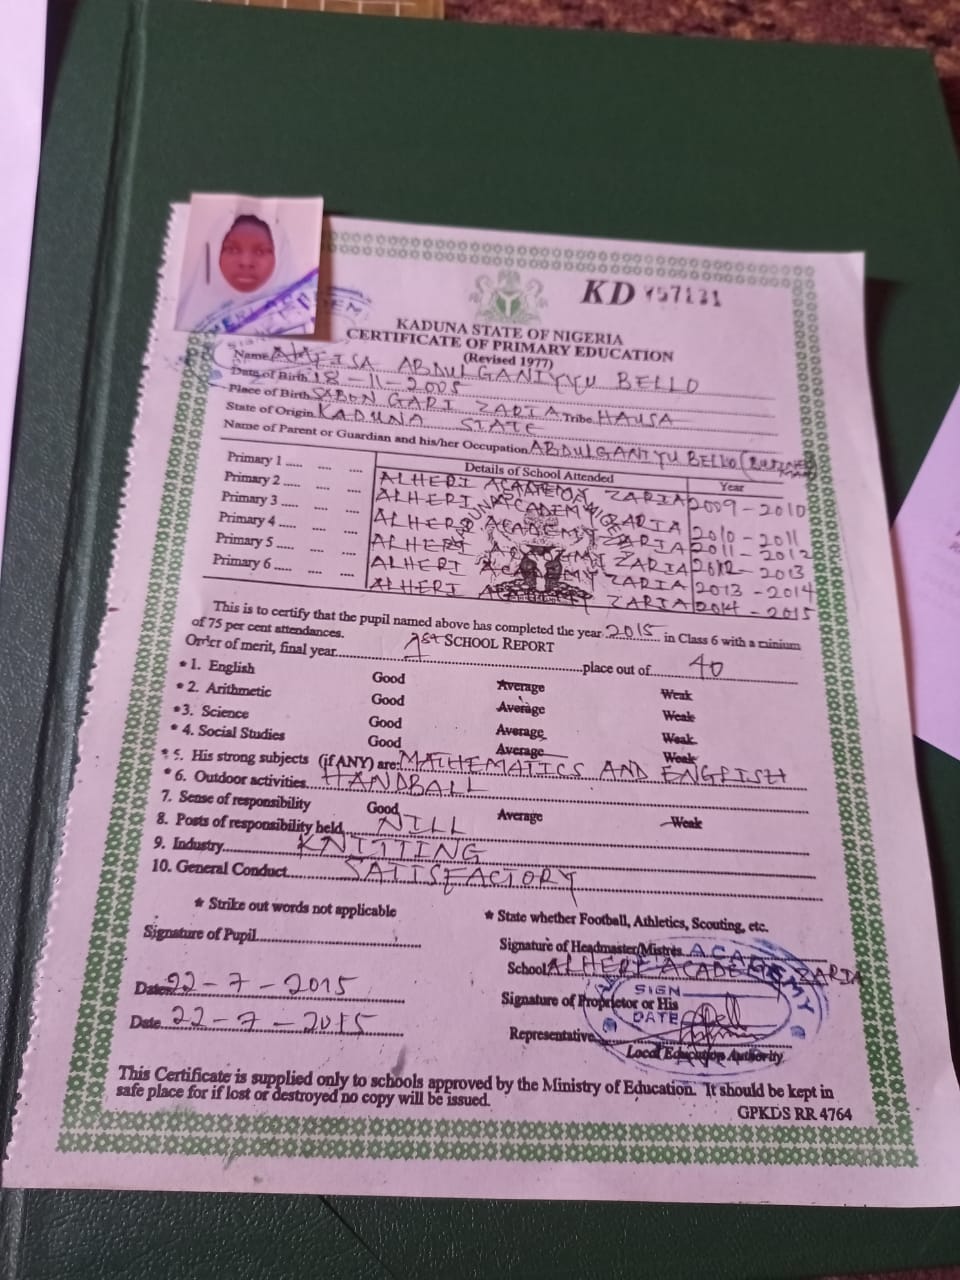 KD 457131
KADUNA STATE OF NIGERIA
CERTIFICATE OF PRIMARY EDUCATION
(Revised 1977)
Name ABDULGANIYYU BELLO
Date of Birth 18-11-2005
Place of Birth SABON GARI ZARIA Tribe HAUSA
State of Origin KADUNA STATE
Name of Parent or Guardian and his/her Occupation ABDULGANIYU BELLO
Details of School Attended Year
Primary 1 ALHERI ACADEMY ZARIA 2009-2010
Primary 2 ALHERI ACADEMY ZARIA 2010-2011
Primary 3 ALHERI ACADEMY ZARIA 2011-2012
Primary 4 ALHERI ACADEMY ZARIA 2012-2013
Primary 5 ALHERI ACADEMY ZARIA 2013-2014
Primary 6 ALHERI ACADEMY ZARIA 2014-2015
This is to certify that the pupil named above has completed the year 2015 in Class 6 with a minium
of 75 per cent attendances.
SCHOOL REPORT
Order of merit, final year 1st place out of 40
* 1. English Good Average Weak
* 2. Arithmetic Good Average Weak
*3. Science Good Average Weak
* 4. Social Studies Good Average Weak
* 5. His strong subjects (if ANY) are: MATHEMATICS AND ENGLISH
* 6. Outdoor activities HANDBALL
7. Sense of responsibility Good Average Weak
8. Posts of responsibility held NILL
9. Industry KNITTING
10. General Conduct SATISFACTORY
* Strike out words not applicable
* State whether Football, Athletics, Scouting, etc.
Signature of Pupil
Signature of Headmaster/Mistres
School ALHERI ACADEMY ZARIA
Date 22-7-2015
Signature of Proprietor or His
Date 22-7-2015
Representative
Local Education Authority
ACADEMY
SIGN
DATE
This Certificate is supplied only to schools approved by the Ministry of Education. It should be kept in
safe place for if lost or destroyed no copy will be issued.
GPKDS RR 4764